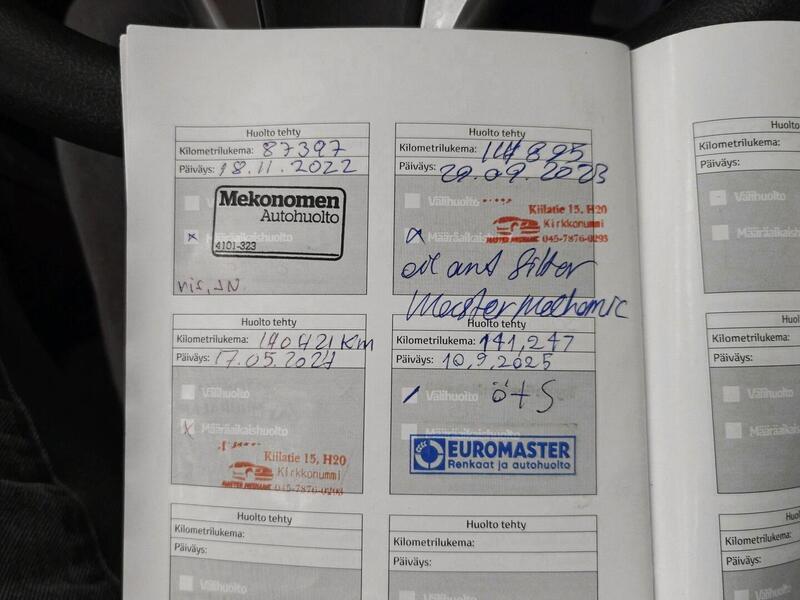 Huolto tehty
Kilometrilukema: 87397
Päiväys: 18.11.2022
Välihuolto
Mekonomen
Autohuolto
Määräaikaishuolto
4101-323
Huolto tehty
Kilometrilukema: 114895
Päiväys: 29.09.2023
Välihuolto
Kiilatie 15, H20
Kirkkonummi
Määräaikaishuolto
MASTER MECHANIC 045-7876-0293
oil ant filter
Master Mechanic
Huolto tehty
Kilometrilukema: 140421 Km
Päiväys: 17.05.2024
Välihuolto
Määräaikaishuolto
Kiilatie 15, H20
Kirkkonummi
MASTER MECHANIC 045-7876-0293
Huolto tehty
Kilometrilukema: 141,247
Päiväys: 10,9,2025
Välihuolto ö+S
EUROMASTER
Renkaat ja autohuolto
Huolto tehty
Kilometrilukema:
Päiväys:
Välihuolto
Huolto tehty
Kilometrilukema:
Päiväys:
Välihuolto
Huolto
Kilometrilukema:
Päiväys:
Välihuolto
Määräaikaish
Huolt
Kilometrilukema:
Päiväys:
Välihuolto
Määräaikais
Huol
Kilometrilukema:
Päiväys:
Välihuolto